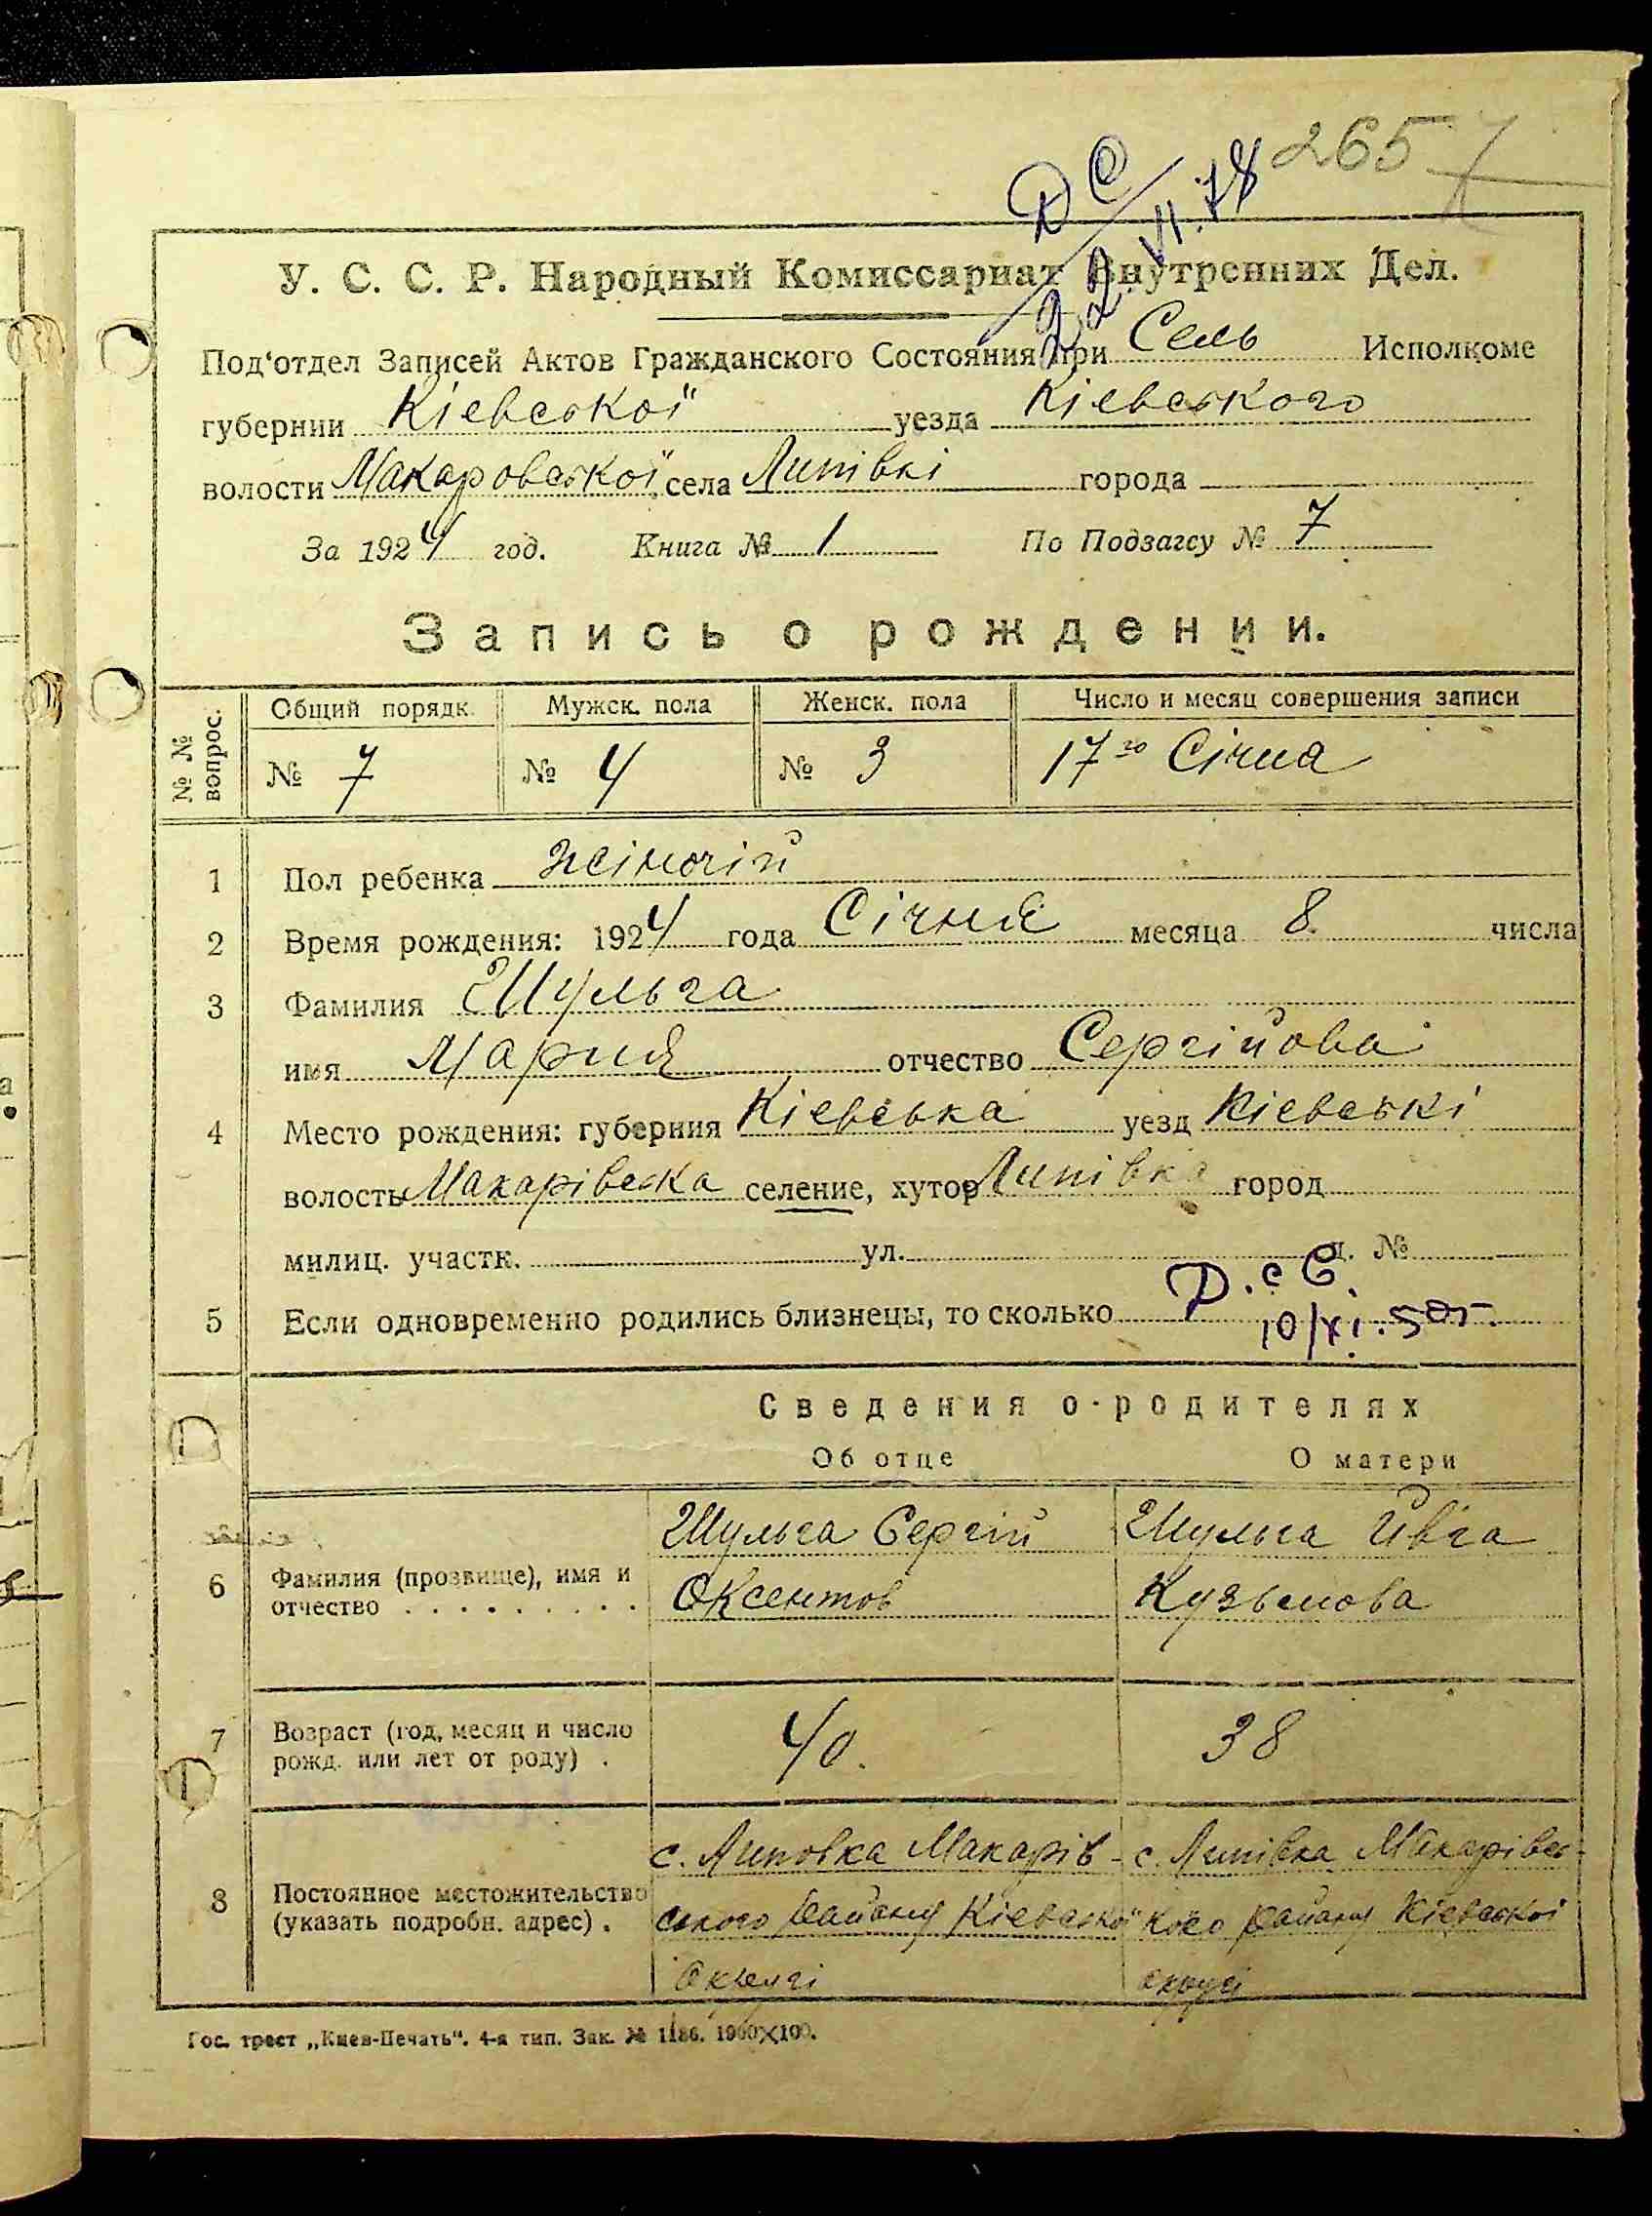 265
ДС
22.VI.78
У. С. С. Р. Народный Комиссариат Внутренних Дел.
Под'отдел Записей Актов Гражданского Состояния при Сель Исполкоме
губернии Кіевськоі уезда Кіевського
волости Макаровськоі села Липівкі города
За 1924 год. Книга № 1 По Подзагсу № 7
Запись о рождении.
№ № вопрос. Общий порядк. Мужск. пола Женск. пола Число и месяц совершения записи
№ 7 № 4 № 3 17го Січня
1 Пол ребенка жіночій
2 Время рождения: 1924 года Січня месяца 8. числа
3 Фамилия Шульга
имя Мария отчество Сергійова
4 Место рождения: губерния Кіевська уезд Кіевські
волость Макарівська селение, хутор Липівка город
милиц. участк. ул. д. №
5 Если одновременно родились близнецы, то сколько
Д.с С.
10/XI.50г.
Сведения о родителях
Об отце О матери
Шульга Сергій Шульга Ивга
6 Фамилия (прозвище), имя и отчество . . . . . . . . . Оксентов Кузьмова
7 Возраст (год, месяц и число рожд. или лет от роду) . 40. 38
с. Липовка Макарів- с. Липівка Макарівсь-
8 Постоянное местожительство (указать подробн. адрес) . ського району Кіевськоі кого району Кіевськоі
Окьугі округі
Гос. трест „Киев-Печать". 4-я тип. Зак. № 1186. 1000×100.